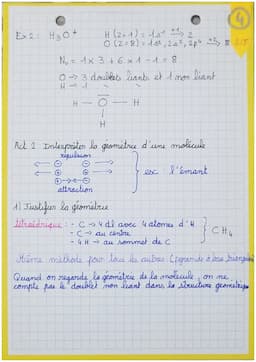 4
Ex 2 : H3O+ H (Z=1) = 1s¹ → 2
O (Z=8) = 1s², 2s², 2p⁴
Nv = 1 x 3 + 6 x 1 - 1 = 8
O → 3 doublets liants et 1 non liant
H → 1
H — O — H
H
Act 2 Interpréter la géométrie d'une molécule
répulsion
attraction
1) Justifier la géométrie
tétraédrique : - C → 4 dl avec 4 atomes d'H
- C → au centre
- 4 H → au sommet de C
CH4
Même méthode pour tous les autres (pyramide à base triangulaire)
Quand on regarde la géométrie de la molécule, on ne
compte pas le doublet non liant dans la structure géométrique